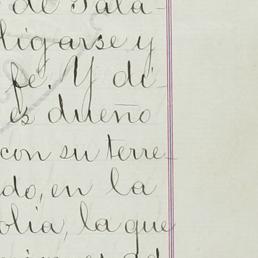 de Sala-
ligarse y
fe. Y di-
es dueño
con su terre
do, en la
olia, la que